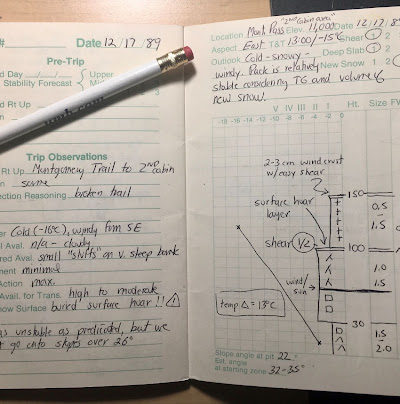 # Date 12/17/89
Pre-Trip
d Day Upper
Stability Forecast Mid
d Rt Up
n
Trip Observations
Rt Up Montgomery Trail to 2ND Cabin
n same
ection Reasoning broken trail
er Cold (-16°C), windy from SE
Aval. n/a - cloudy
red Aval. small "sluffs" on v. steep bank
ment minimal
Action max.
Avail. for Trans. high to moderate
now Surface buried surface hoar!!
as unstable as predicated, but we
t go onto slopes over 26°
Location Mont Pass "2nd Cabin area" Elev. 11,000 Date 12/17/89
Aspect East T&T 13:00/-15°C Shear 1 2
Outlook Cold - snowy - Deep Slab 1 2
windy. Pack is relatively New Snow 1
stable considering TG and volume of
new snow.
V IV III II I Ht. Size
-18 -16 -14 -12 -10 -8 -6 -4 -2 0
2-3 cm wind crust
w/easy shear
150
surface hoar
layer
0.5
-
1.5
shear 1/2
100
wind/
sun
1.0
1.5
temp Δ = 13°C
30
1.5
-
2.0
Slope angle at pit 22°
Est. angle
at starting zone 32-35°